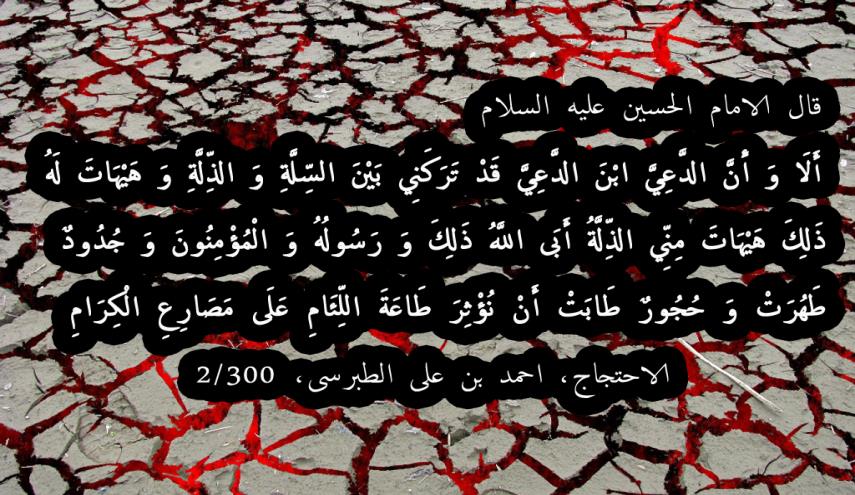 قال الامام الحسين عليه السلام
أَلَا وَ أَنَّ الدَّعِيَّ ابْنَ الدَّعِيَّ قَدْ تَرَكَنِي بَيْنَ السِّلَّةِ وَ الذِّلَّةِ وَ هَيْهَاتَ لَهُ
ذَلِكَ هَيْهَاتَ مِنِّي الذِّلَّةُ أَبَى اللَّهُ ذَلِكَ وَ رَسُولُهُ وَ الْمُؤْمِنُونَ وَ جُدُودٌ
طَهُرَتْ وَ حُجُورٌ طَابَتْ أَنْ نُؤْثِرَ طَاعَةَ اللِّئَامِ عَلَى مَصَارِعِ الْكِرَامِ
الاحتجاج، احمد بن على الطبرسى، 2/300